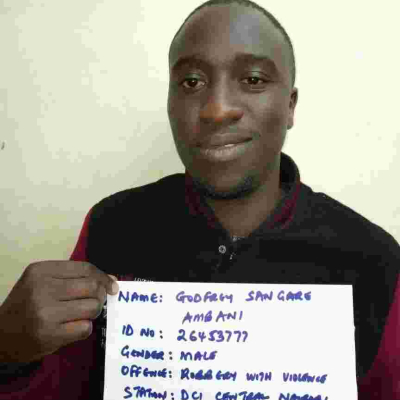 NAME: GODFREY SANGARE
AMBANI
ID NO: 26453777
GENDER: MALE
OFFENCE: ROBBERY WITH VIOLENCE
STATION: DCI CENTRAL NAIROBI